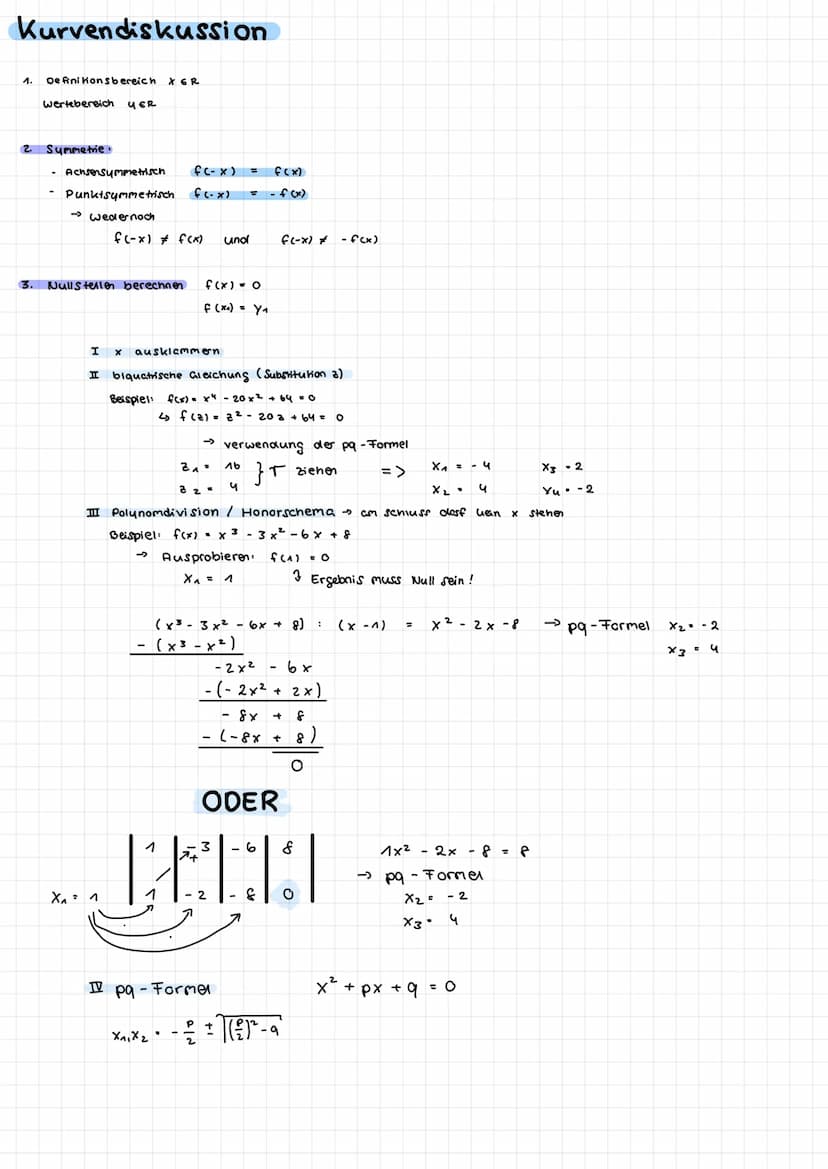 Kurvendiskussion
1. Definitionsbereich x ∈ R
Wertebereich y ∈ R
2. Symmetrie:
- Achsensymmetrisch f(-x) = f(x)
- Punktsymmetrisch f(-x) = -f(x)
→ Wedernoch
f(-x) ≠ f(x) und f(-x) ≠ -f(x)
3. Nullstellen berechnen f(x) = 0
f(x₁) = y₁
I x ausklammern
II biquatrische Gleichung (Substitution z)
Beispiel: f(x) = x⁴ - 20x² + 64 = 0
↳ f(z) = z² - 20z + 64 = 0
→ verwendung der pq-Formel
z₁ = 16 } √ ziehen => x₁ = -4 x₃ = 2
z₂ = 4 x₂ = 4 x₄ = -2
III Polynomdivision / Honorschema → am schluss darf kein x stehen
Beispiel: f(x) = x³ - 3x² - 6x + 8
→ Ausprobieren: f(1) = 0
x₁ = 1 Ergebnis muss Null sein!
(x³ - 3x² - 6x + 8) : (x - 1) = x² - 2x - 8 → pq-Formel x₂ = -2
- (x³ - x²) x₃ = 4
-2x² - 6x
-(-2x² + 2x)
- 8x + 8
- (-8x + 8)
0
ODER
1 | -3 | -6 | 8 1x² - 2x - 8 = 8
+
→ pq-Formel
x₁ = 1 | 1 | -2 | -8 | 0 x₂ = -2
x₃ = 4
IV pq-Formel x² + px + q = 0
x₁,x₂ = -p/2 ± √(p/2)² - q